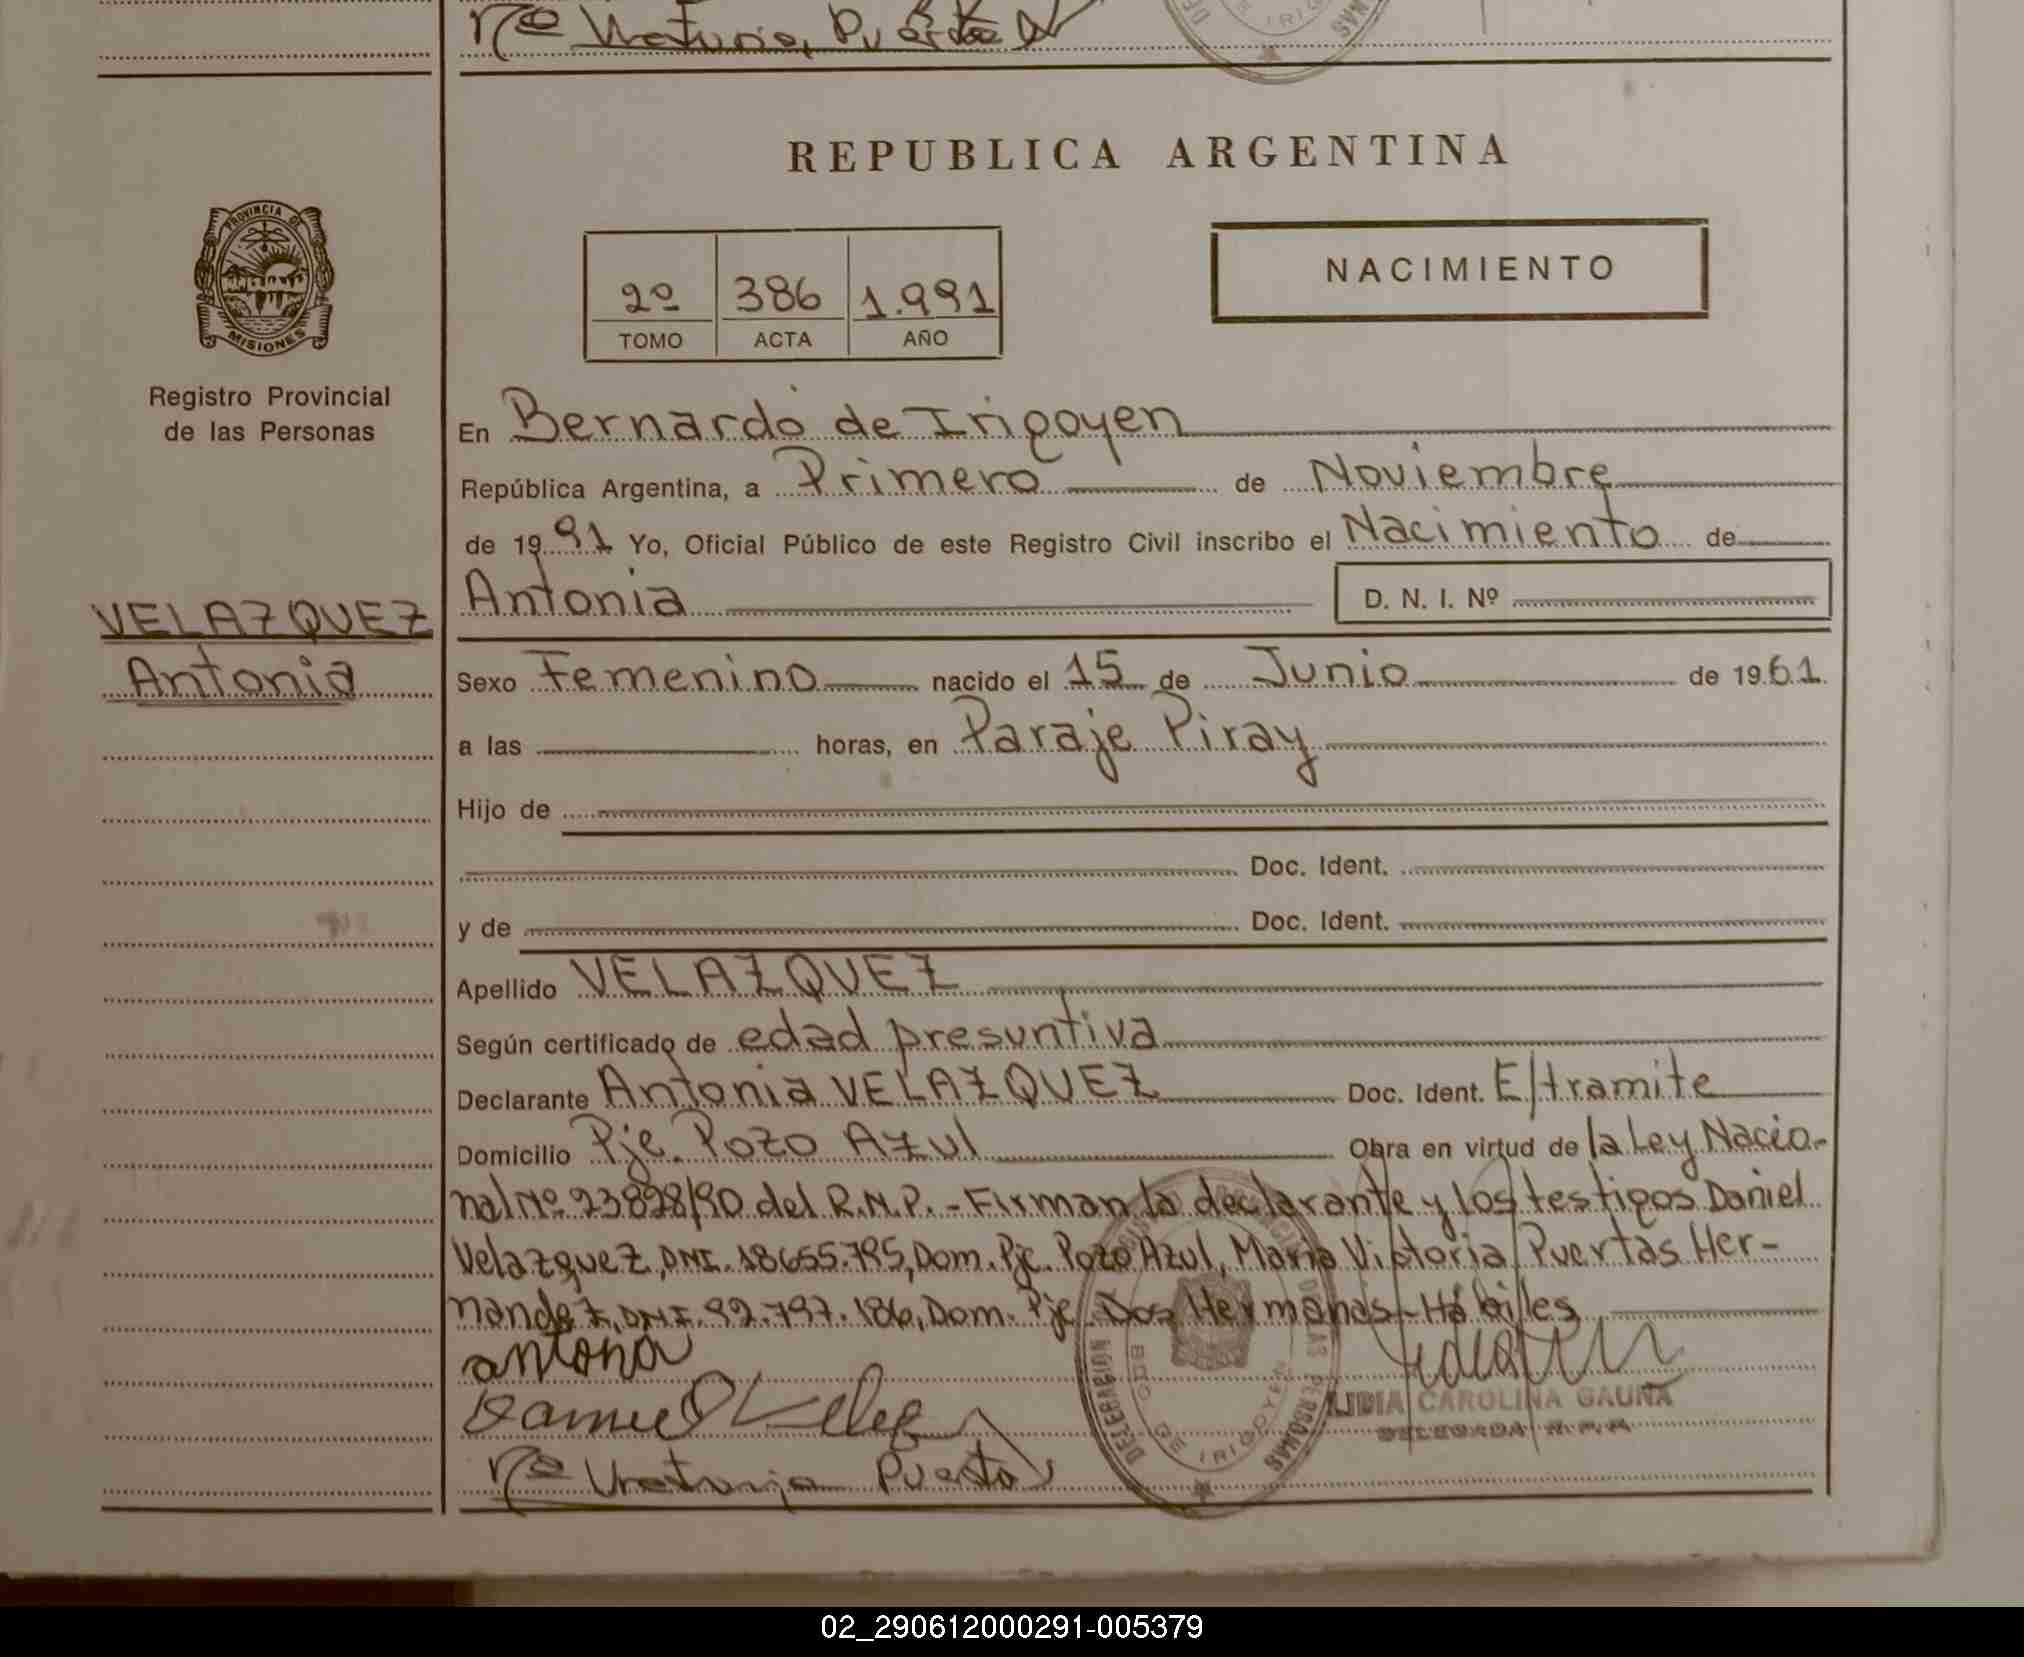 Mª Victoria Puertas
REPUBLICA ARGENTINA
PROVINCIA DE
MISIONES
Registro Provincial
de las Personas
2º 386 1.991
TOMO ACTA AÑO
NACIMIENTO
En Bernardo de Irigoyen
República Argentina, a Primero de Noviembre
de 1991 Yo, Oficial Público de este Registro Civil inscribo el Nacimiento de
Antonia D. N. I. Nº
VELAZQUEZ
Antonia
Sexo Femenino nacido el 15 de Junio de 1961
a las horas, en Paraje Piray
Hijo de
Doc. Ident.
y de Doc. Ident.
Apellido VELAZQUEZ
Según certificado de edad presuntiva
Declarante Antonia VELAZQUEZ Doc. Ident. E/tramite
Domicilio Pje. Pozo Azul Obra en virtud de la Ley Nacio-
nal Nº 23828/90 del R.N.P. - Firman la declarante y los testigos Daniel
Velazquez, DNI. 18655.795, Dom. Pje. Pozo Azul, Maria Victoria Puertas Her-
nandez, DNI. 92.797.186, Dom. Pje. Dos Hermanas - Hábiles
antona
Daniel
Mª Victoria Puerta
DELEGACION DE LAS PERSONAS
BDO. DE IRIGOYEN
LIDIA CAROLINA GAUNA
DELEGADA
02_290612000291-005379